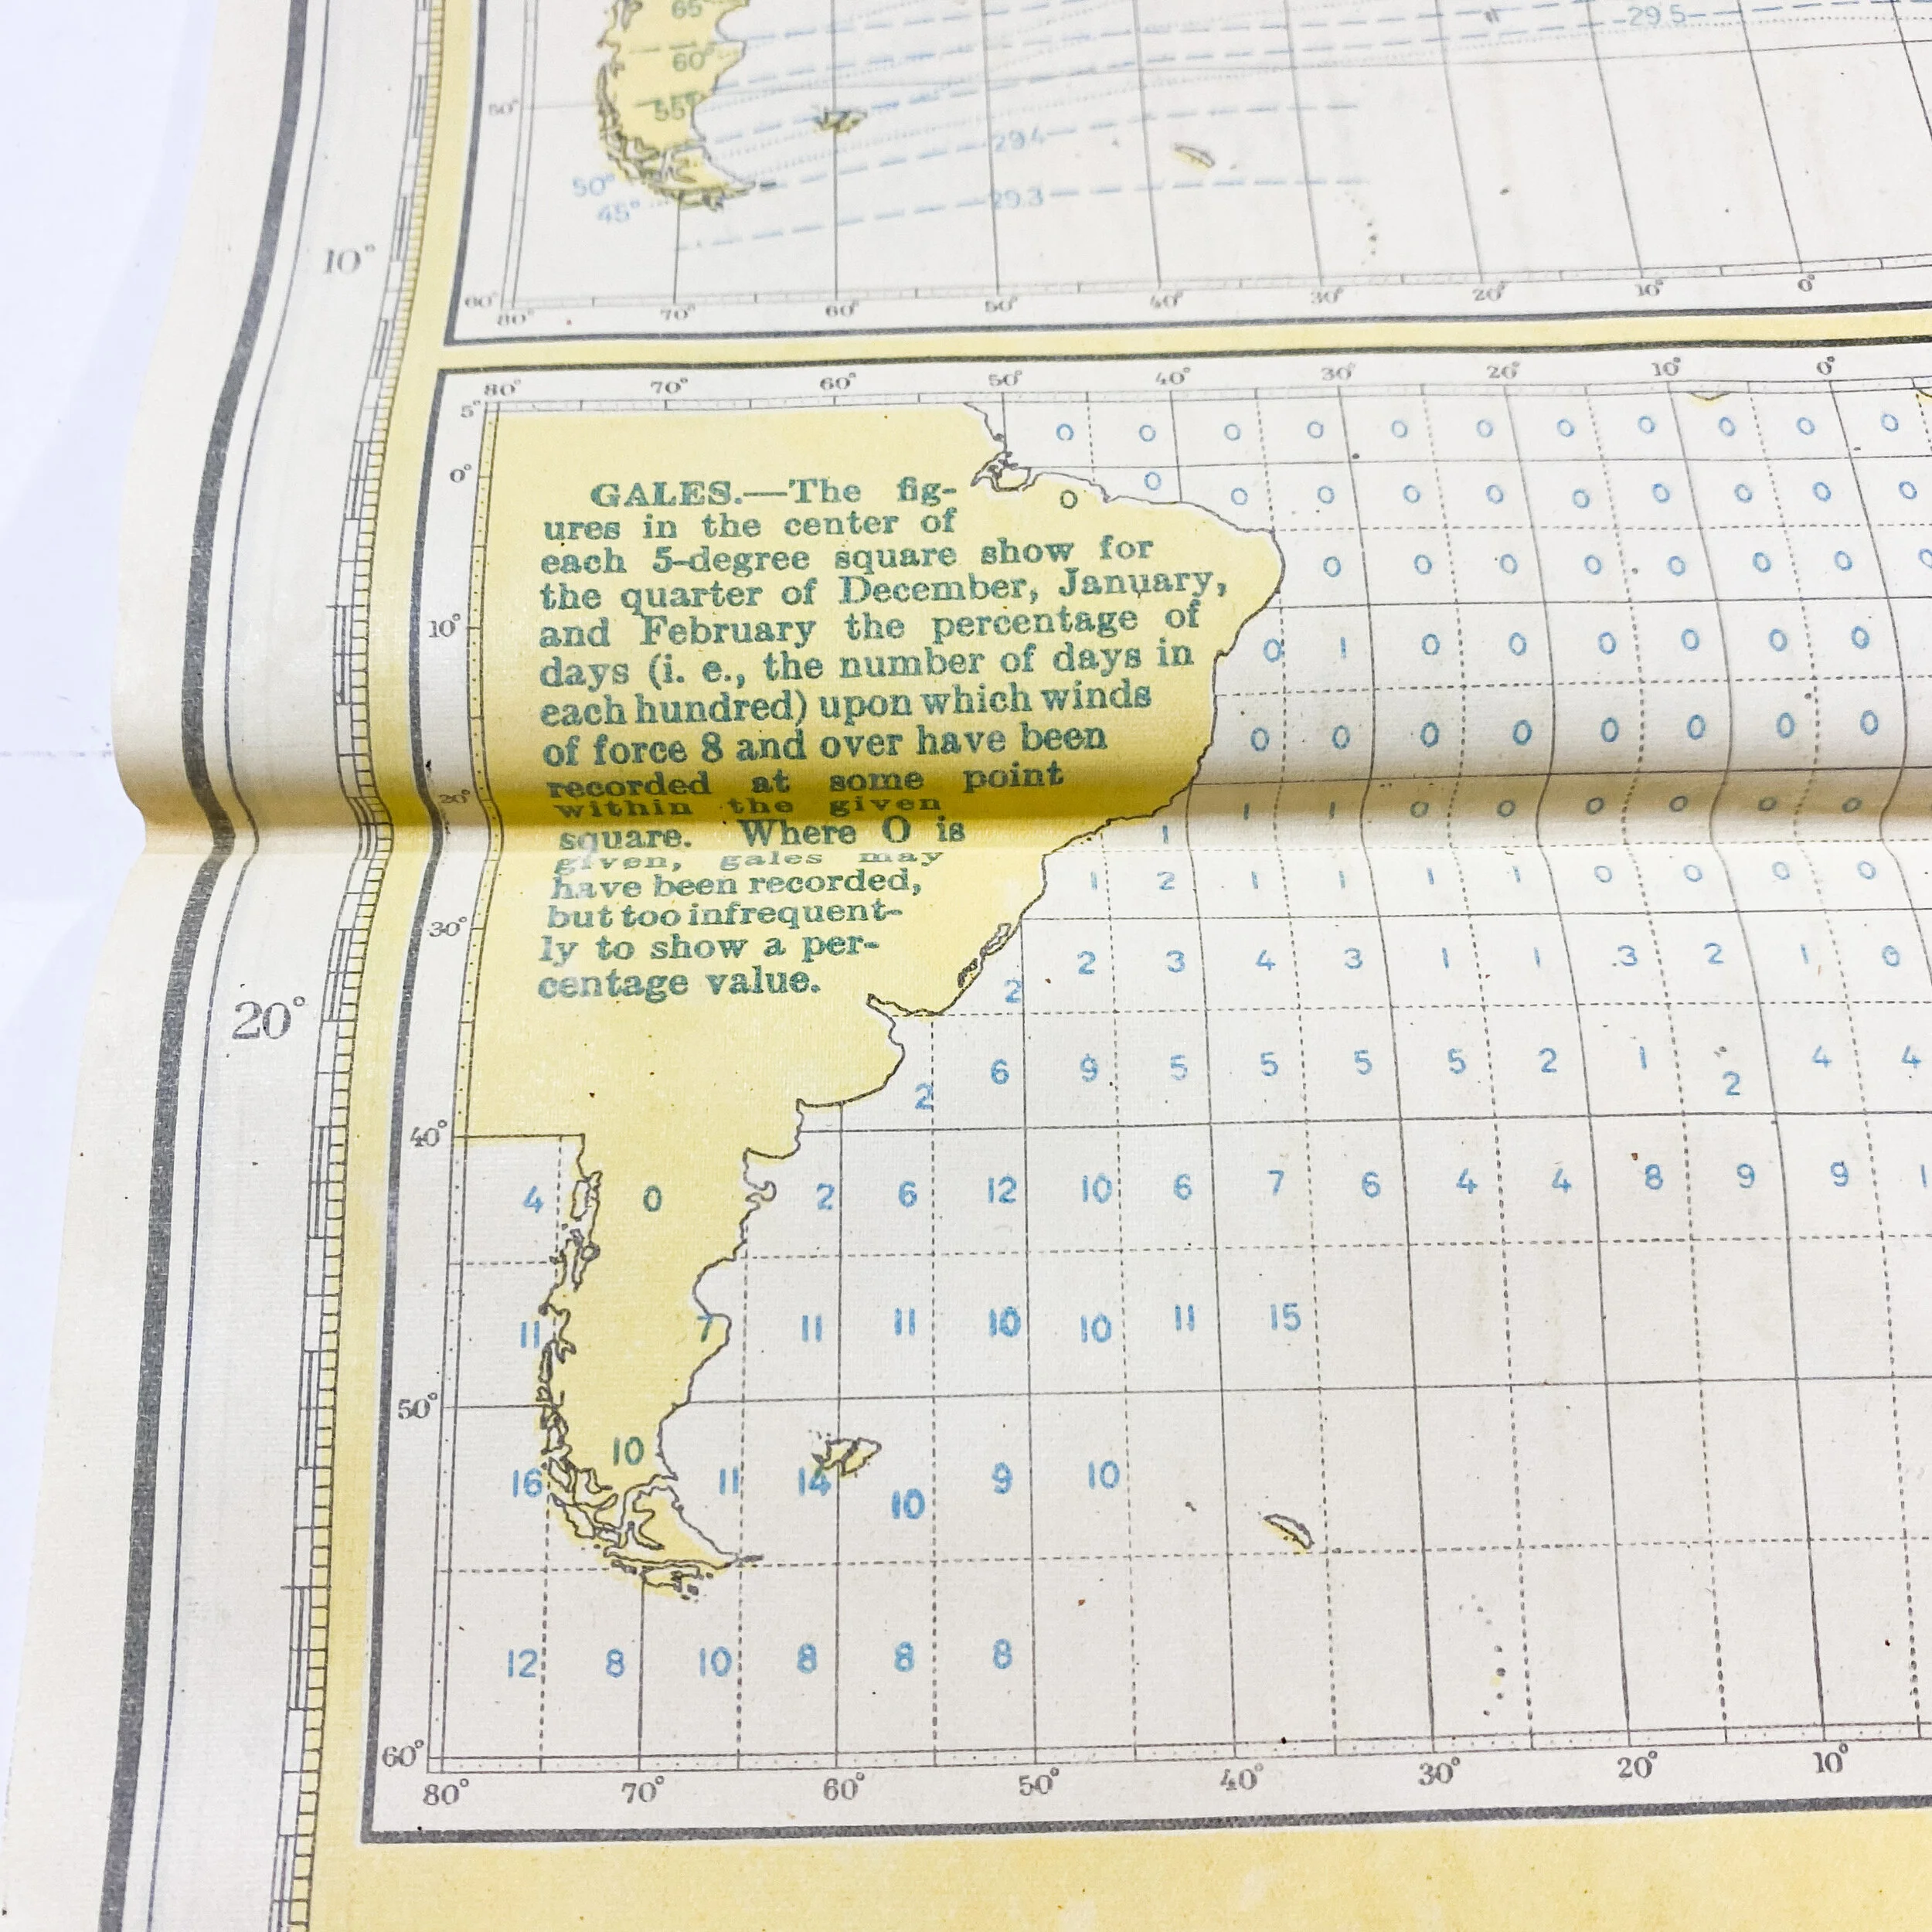 65°
29.5
60°
50°
55°
29.4
50°
45°
29.3
10°
60°
80° 70° 60° 50° 40° 30° 20° 10° 0°
80° 70° 60° 50° 40° 30° 20° 10° 0°
5°
0 0 0 0 0 0 0 0 0 0 0
0°
0 0 0 0 0 0 0 0 0 0 0
GALES.—The fig-
ures in the center of
each 5-degree square show for
the quarter of December, January,
and February the percentage of
days (i. e., the number of days in
each hundred) upon which winds
of force 8 and over have been
recorded at some point
within the given
square. Where O is
given, gales may
have been recorded,
but too infrequent-
ly to show a per-
centage value.
0 0 0 0 0 0 0 0
10°
0 1 0 0 0 0 0 0
0 0 0 0 0 0 0 0
20°
1 1 1 0 0 0 0 0 0
1 2 1 1 1 1 0 0 0 0
30°
2 2 3 4 3 1 1 3 2 1 0
20°
2 6 9 5 5 5 5 2 1 2 4 4
40°
4 0 2 6 12 10 6 7 6 4 4 8 9 9 1
11 7 11 11 10 10 11 15
50°
16 10 11 14 10 9 10
12 8 10 8 8 8
60°
80° 70° 60° 50° 40° 30° 20° 10°